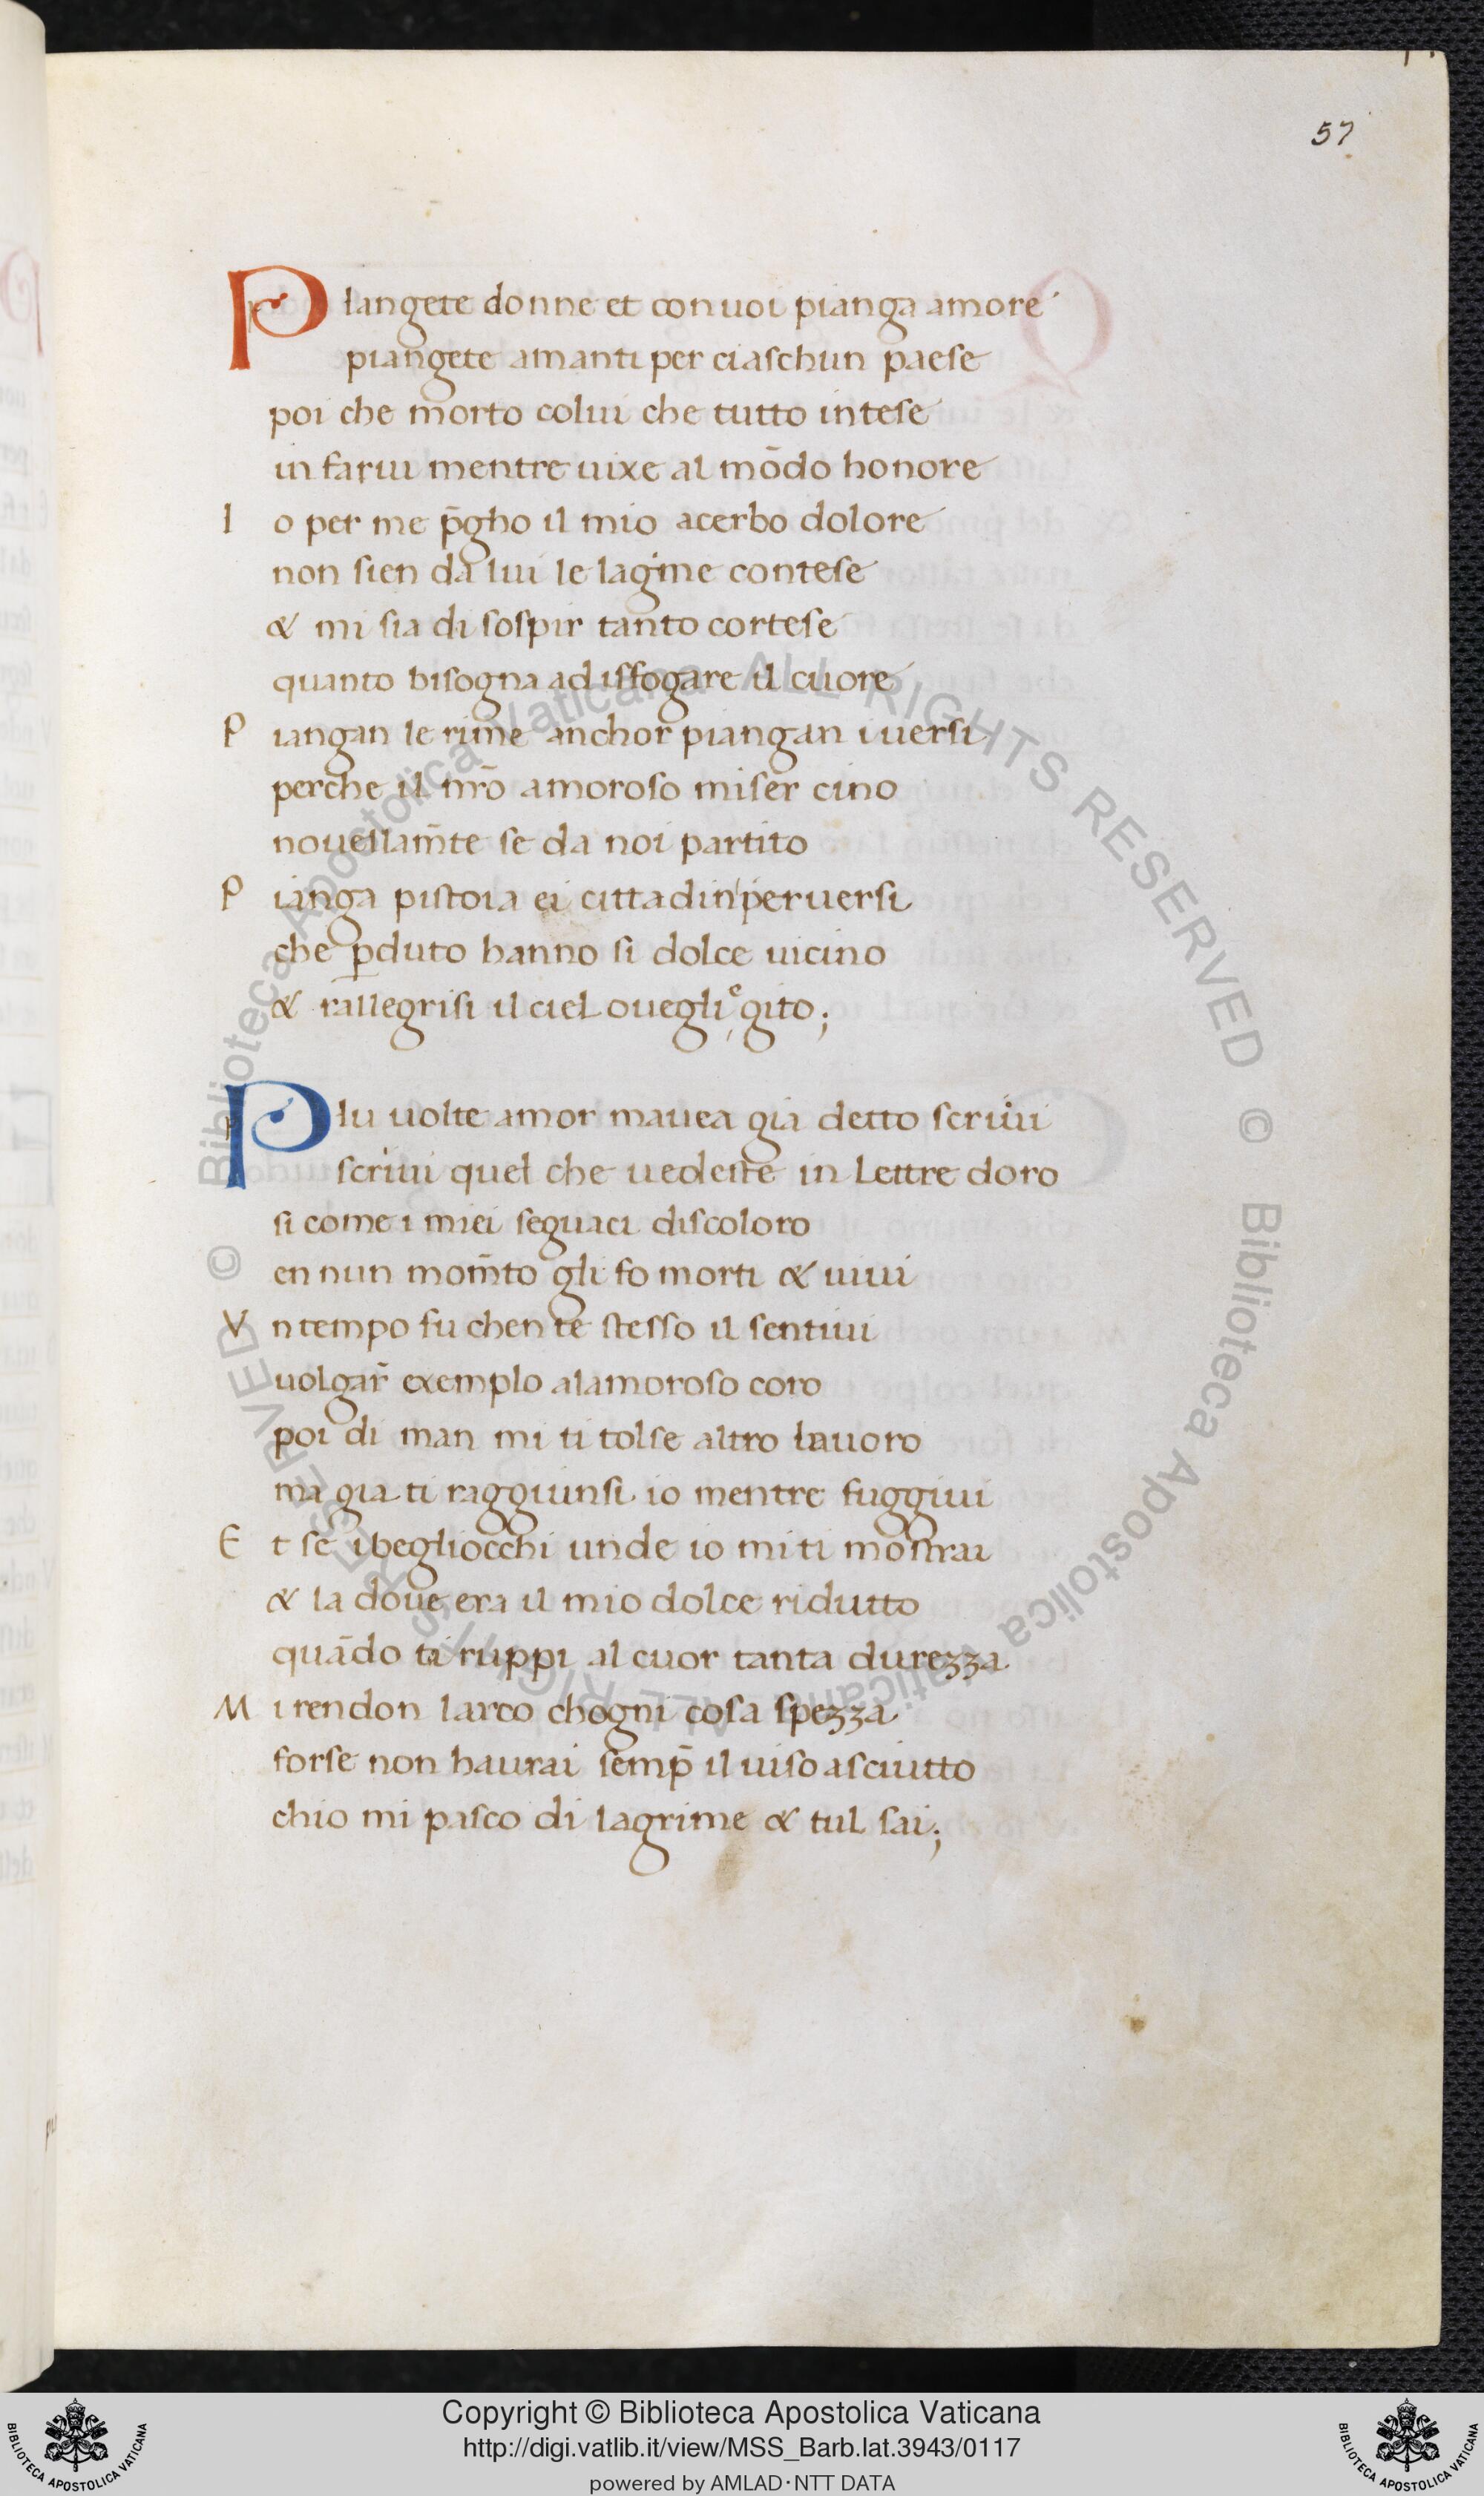 57
PIangete donne et con uoi pianga amore
piangete amanti per ciaschun paese
poi che morto colui che tutto intese
in farui mentre uixe al mōdo honore
I o per me p̄gho il mio acerbo dolore
non sien da lui le lagime contese
& mi sia di sospir tanto cortese
quanto bisogna ad isfogare il cuore
P iangan le rime anchor piangan i uersi
perche il nr̄o amoroso miser cino
nouellam̄te se da noi partito
P ianga pistoia ei cittadin peruersi
che ꝑduto hanno si dolce uicino
& rallegrisi il ciel ouegli e gito;
PIu uolte amor mauea gia detto scriui
scriui quel che uedeste in lettre doro
si come i miei seguaci discoloro
en nun mom̄to gli fo morti & uiui
V n tempo fu chen te stesso il sentiui
uolgar̄ exemplo alamoroso coro
poi di man mi ti tolse altro lauoro
ma gia ti raggiunsi io mentre fuggiui
E t se i begliocchi unde io mi ti mostrai
& la doue era il mio dolce ridutto
quādo ti ruppi al cuor tanta durezza
M i rendon larco chogni cosa spezza
forse non haurai semp̄ il uiso asciutto
chio mi pasco di lagrime & tul sai;
© Biblioteca Apostolica Vaticana ALL RIGHTS RESERVED © Biblioteca Apostolica Vaticana ALL RIGHTS RESERVED
Copyright © Biblioteca Apostolica Vaticana
http://digi.vatlib.it/view/MSS_Barb.lat.3943/0117
powered by AMLAD·NTT DATA
BIBLIOTECA APOSTOLICA VATICANA
BIBLIOTECA APOSTOLICA VATICANA